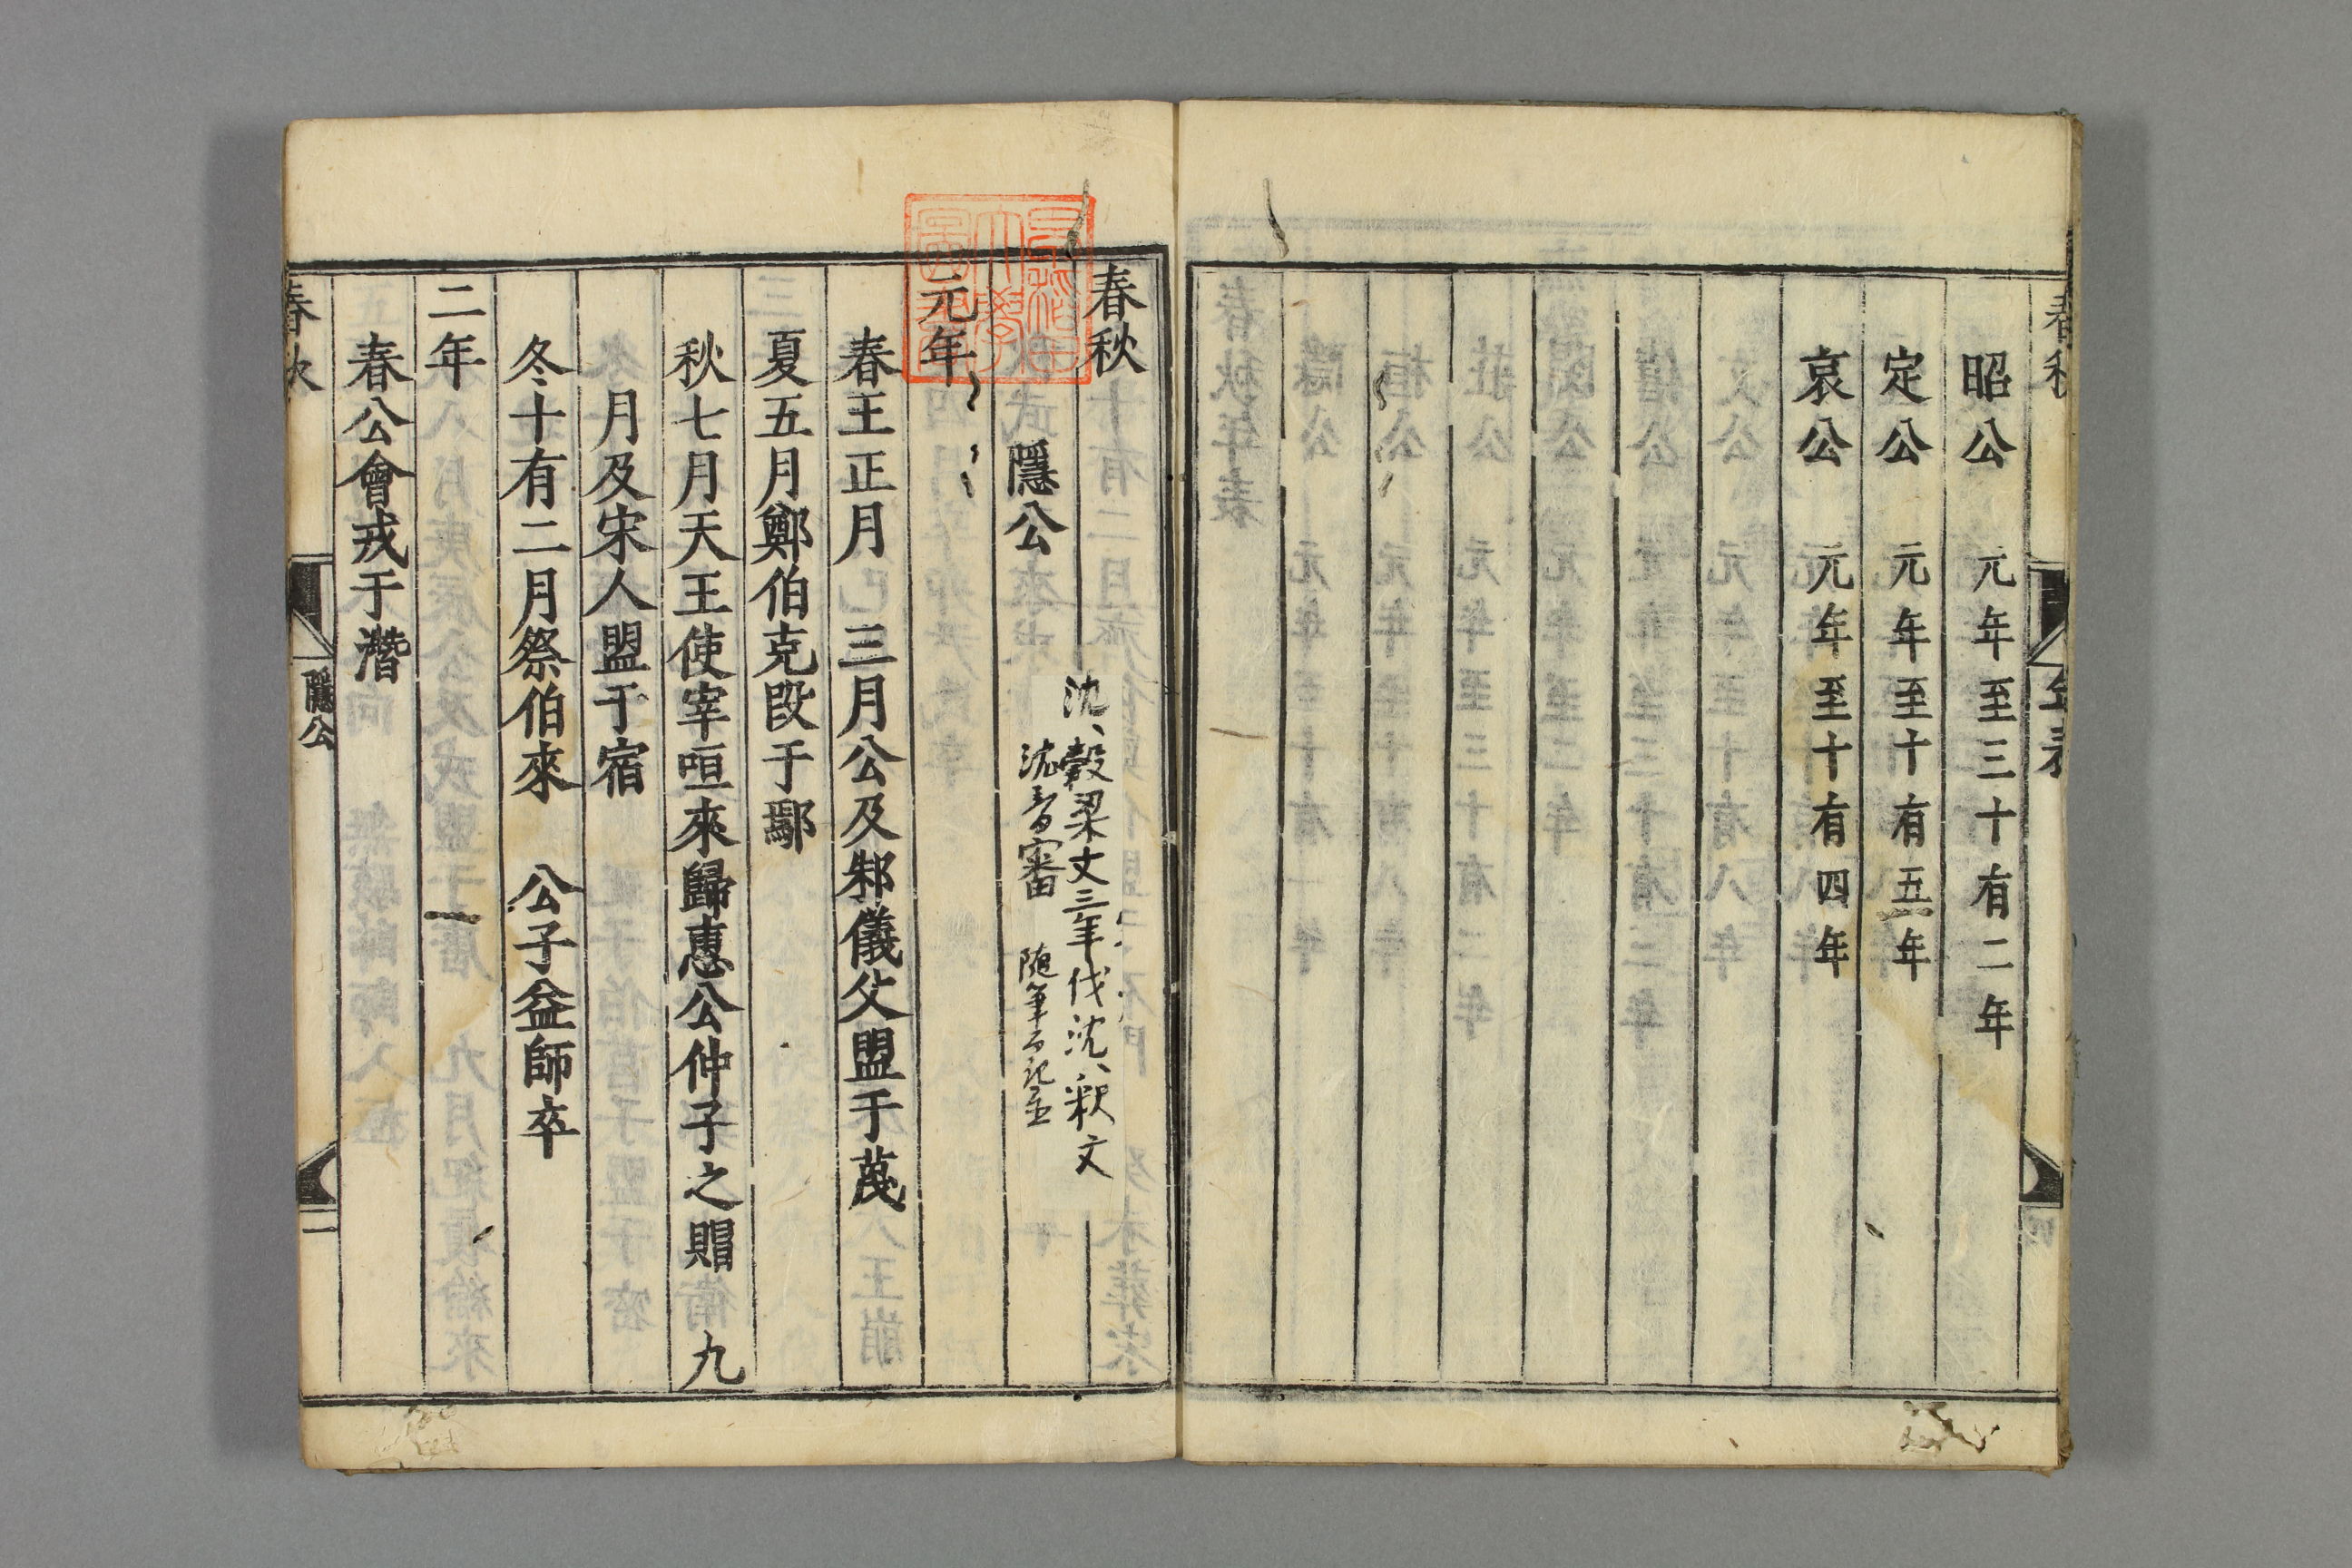 昭公 元年至三十有二年
定公 元年至十有五年
哀公 元年至十有四年
春秋
隱公
沈、穀梁文三年伐沈、釈文
沈音審 随筆
元年
春王正月 三月公及邾儀父盟于蔑
夏五月鄭伯克段于鄢
秋七月天王使宰咺來歸惠公仲子之賵 九
月及宋人盟于宿
冬十有二月祭伯來 公子益師卒
二年
春公會戎于潛
春秋
隱公
一